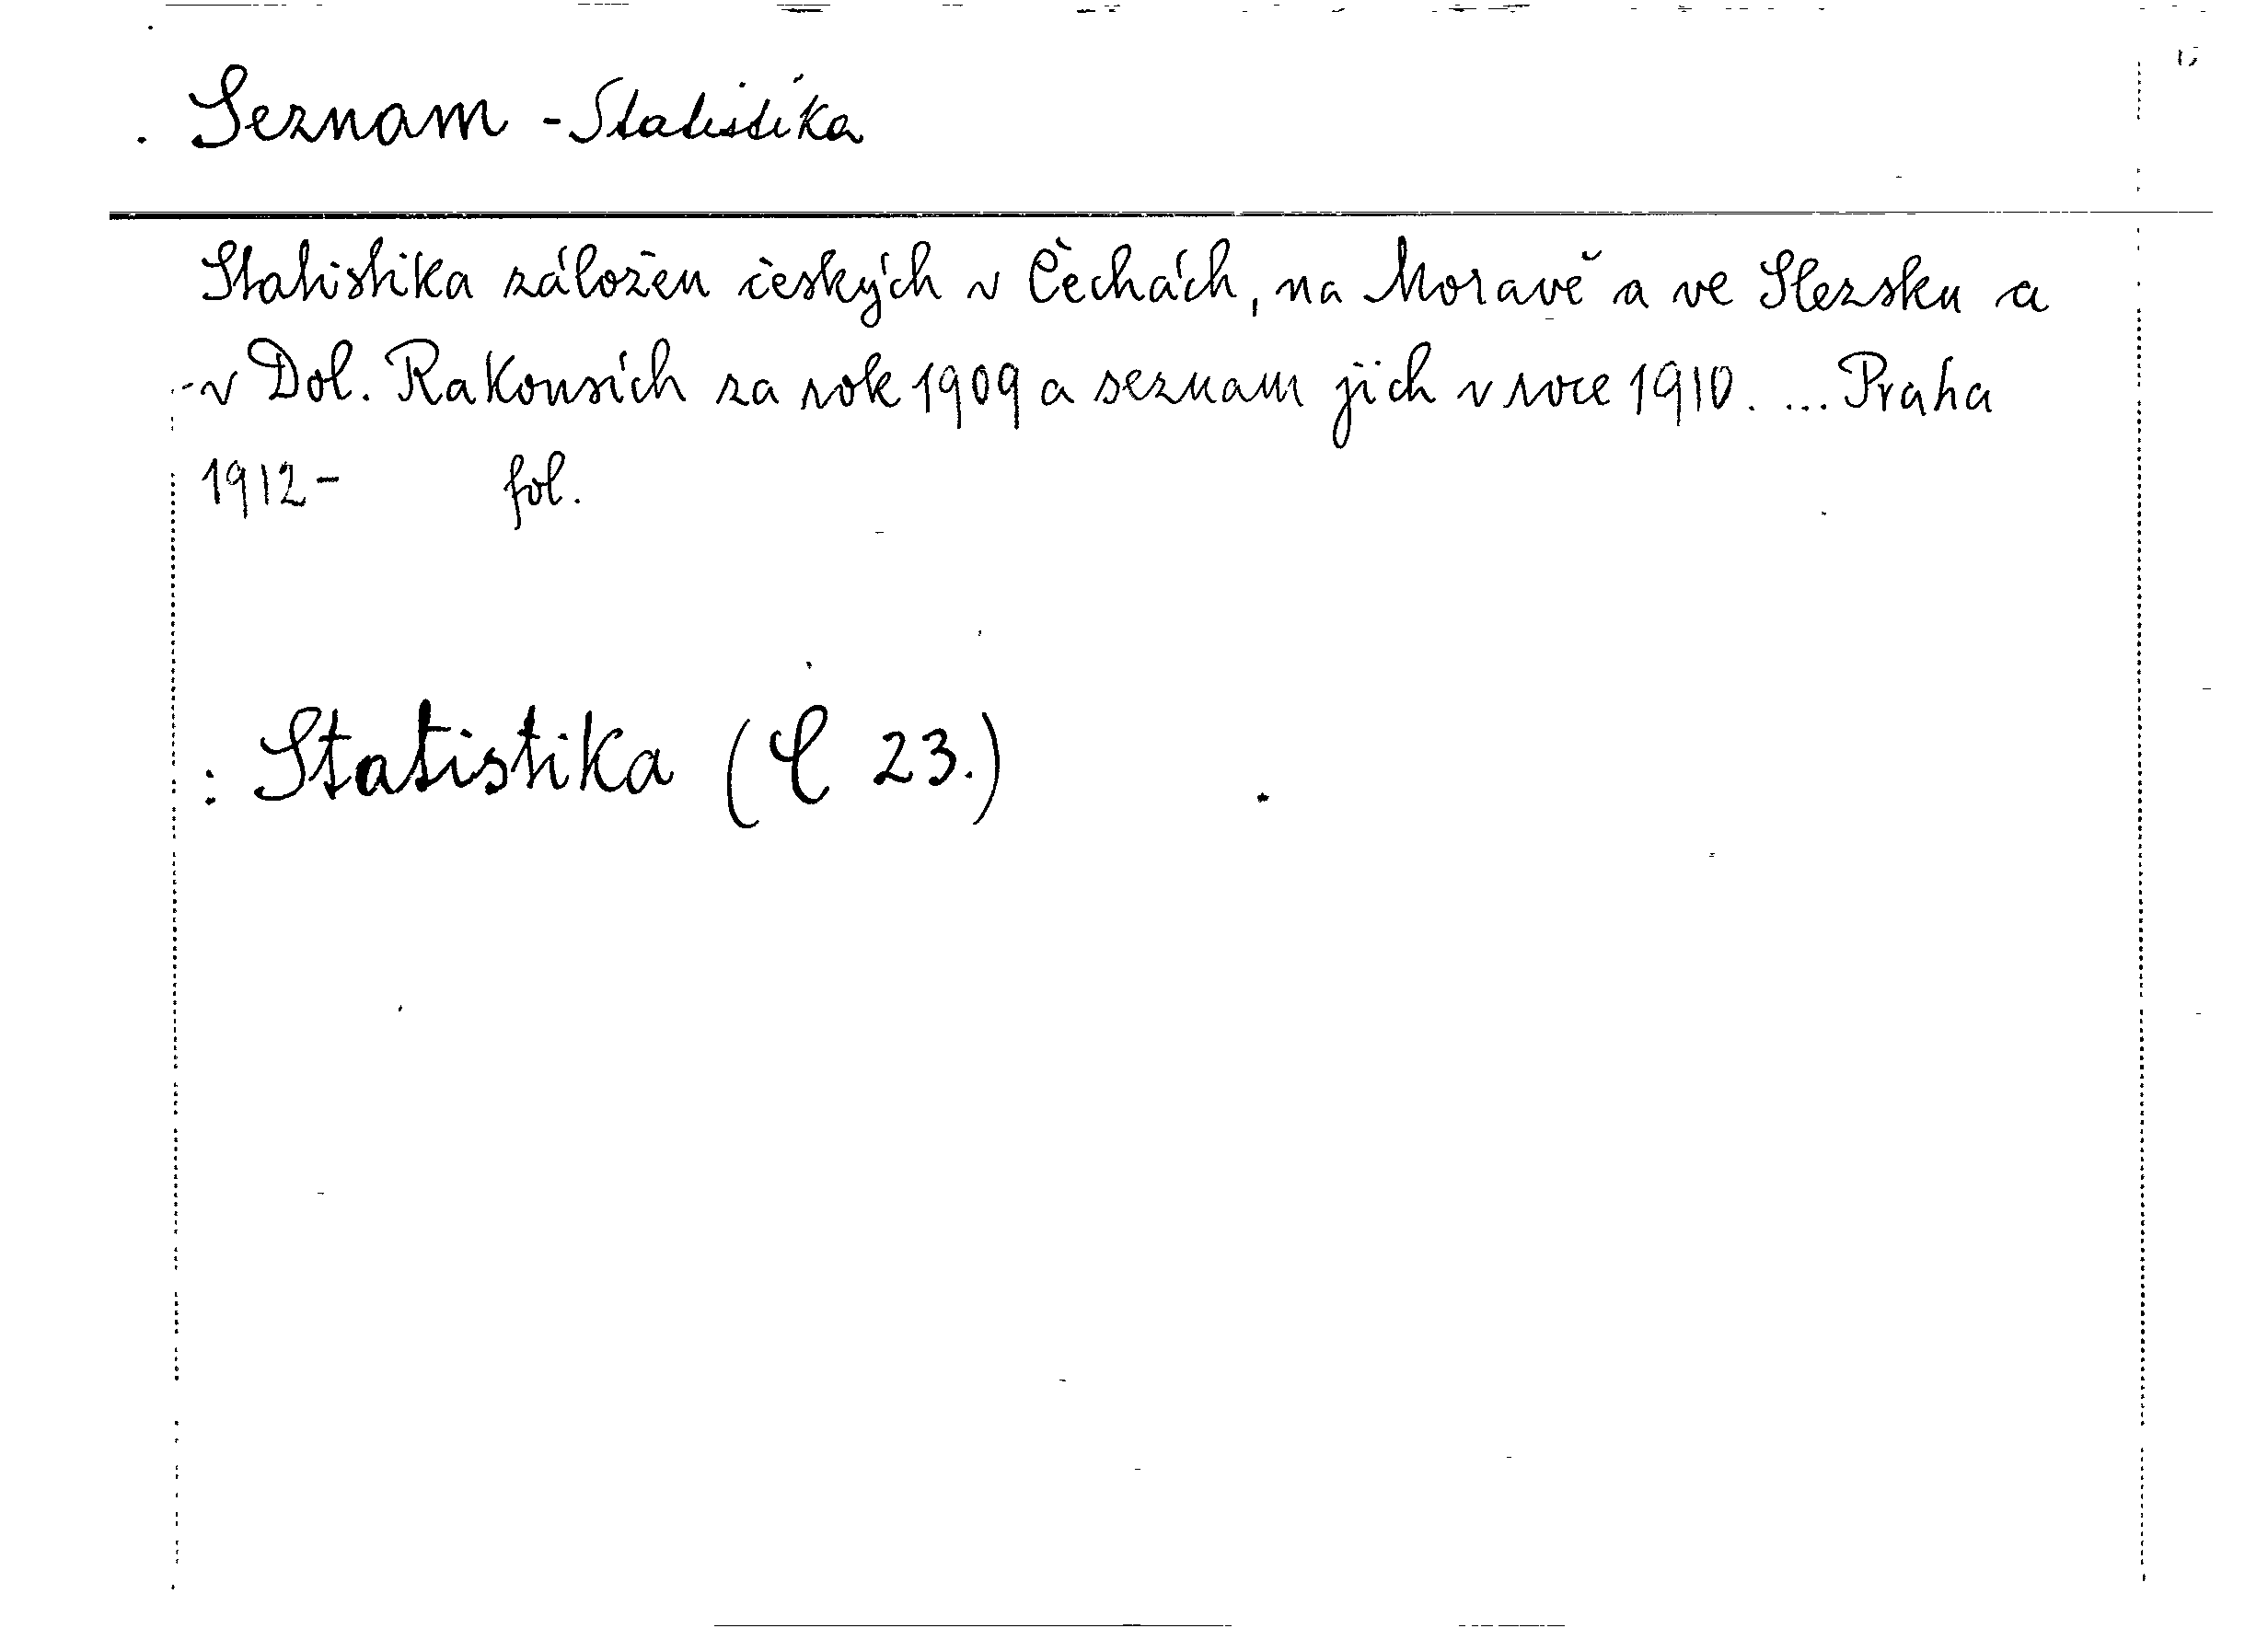 Seznam - Statistika
Statistika záložen českých v Čechách, na Moravě a ve Slezsku a
v Dol. Rakousích za rok 1909 a seznam jich v roce 1910. ... Praha
1912- fol.
: Statistika (C 23.)